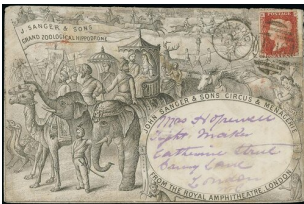 J. SANGER & SONS
GRAND ZOOLOGICAL HIPPODROME
JOHN SANGER & SONS' CIRCUS & MENAGERIE
Mrs Hopewell
Tight Maker
Catherine Street
London
FROM THE ROYAL AMPHITHEATRE, LONDON